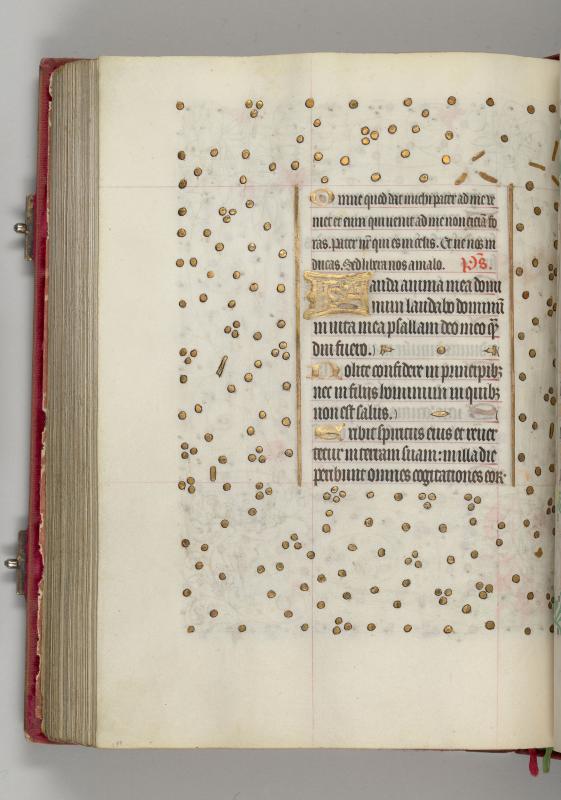 Omne quod dat michi pater ad me ve
niet et eum qui uenit ad me non eiciā fo
ras. Pater nr̄ qui es in celis. Et ne nos in
ducas. Sed libera nos a malo. p̄s.
Lauda anima mea domi
num laudabo dominū
in uita mea psallam deo meo qͣ̄
diu fuero.
Nolite confidere in principibꝫ
nec in filijs hominum in quibꝫ
non est salus.
Exibit spiritus eius et reuer
tetur in terram suam: in illa die
peribunt omnes cogitationes eor